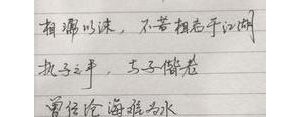 相濡以沫，不若相忘于江湖
执子之手，与子偕老
曾经沧海难为水